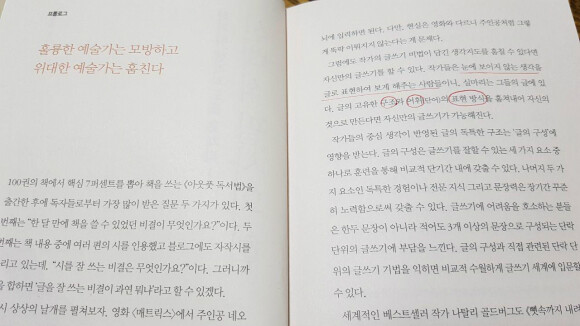 프롤로그
훌륭한 예술가는 모방하고
위대한 예술가는 훔친다
100권의 책에서 핵심 7퍼센트를 뽑아 책을 쓰는 《아웃풋 독서법》을
출간한 후에 독자들로부터 가장 많이 받은 질문 두 가지가 있다. 첫
번째는 “한 달 만에 책을 쓸 수 있었던 비결이 무엇인가요?”이다. 두
번째는 책 내용 중에 여러 편의 시를 인용했고 블로그에도 자작시를
리고 있는데, “시를 잘 쓰는 비결은 무엇인가요?”이다. 그러니까
을 합하면 ‘글을 잘 쓰는 비결이 과연 뭐냐’라고 할 수 있겠다.
시 상상의 날개를 펼쳐보자. 영화 〈매트릭스〉에서 주인공 네오
뇌에 입력하면 된다. 다만, 현실은 영화와 다르니 주인공처럼 그렇
게 뚝딱 이뤄지지 않는다는 게 문제다.
그럼에도 작가의 글쓰기 비법이 담긴 생각지도를 훔칠 수 있다면
자신만의 글쓰기를 할 수 있다. 작가들은 눈에 보이지 않는 생각을
글로 표현하여 보게 해주는 사람들이니, 실마리는 그들의 글에 있
다. 글의 고유한 구조와 어휘(단어)의 표현 방식을 훔쳐내어 자신의
것으로 만든다면 자신만의 글쓰기가 가능해진다.
작가들의 중심 생각이 반영된 글의 독특한 구조는 ‘글의 구성’에
영향을 받는다. 글의 구성은 글쓰기를 잘할 수 있는 세 가지 요소 중
하나로 훈련을 통해 비교적 단기간 내에 갖출 수 있다. 나머지 두 가
지 요소인 독특한 경험이나 전문 지식 그리고 문장력은 장기간 꾸준
히 노력함으로써 갖출 수 있다. 글쓰기에 어려움을 호소하는 분들
은 한두 문장이 아니라 적어도 3개 이상의 문장으로 구성되는 단락
단위의 글쓰기에 부담을 느낀다. 글의 구성과 직접 관련된 단락 단
위의 글쓰기 기법을 익히면 비교적 수월하게 글쓰기 세계에 입문할
수 있다.
세계적인 베스트셀러 작가 나탈리 골드버그도 《뼛속까지 내려